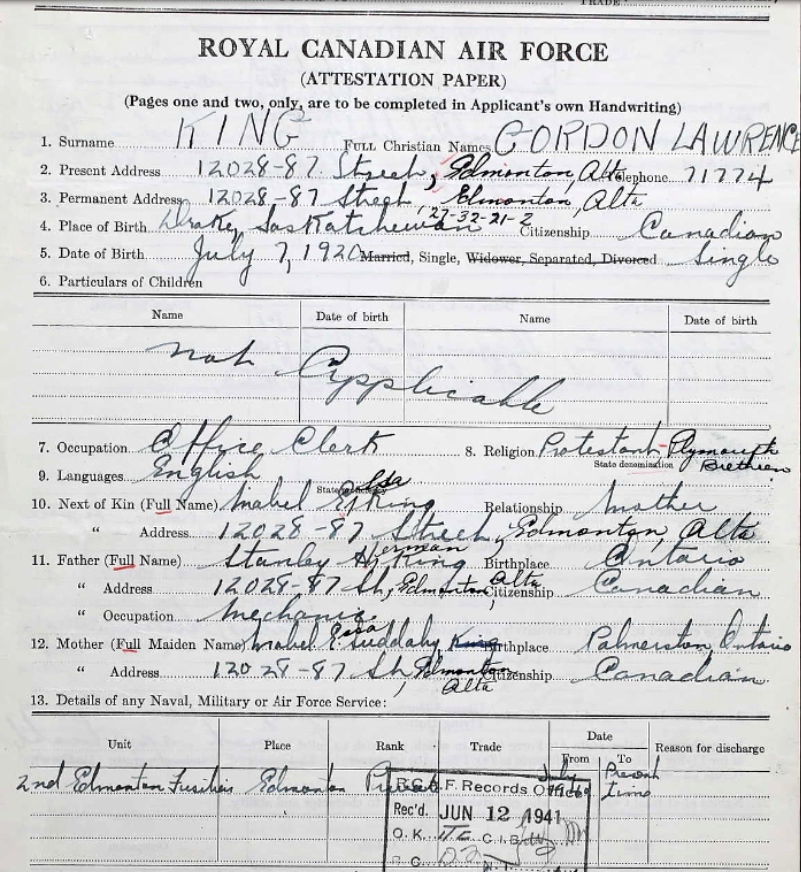 TRADE
ROYAL CANADIAN AIR FORCE
(ATTESTATION PAPER)
(Pages one and two, only, are to be completed in Applicant's own Handwriting)
1. Surname KING FULL Christian Names GORDON LAWRENCE
2. Present Address 12028-87 Street, Edmonton, Alta Telephone 71774
3. Permanent Address 12028-87 Street, Edmonton, Alta
27-32-21-2
4. Place of Birth Drake, Saskatchewan Citizenship Canadian
5. Date of Birth July 7, 1920 Married, Single, Widower, Separated, Divorced Single
6. Particulars of Children
Name Date of birth Name Date of birth
Not Applicable
7. Occupation Office Clerk 8. Religion Protestant-Plymouth
State denomination Brethren
9. Languages English
10. Next of Kin (Full Name) Mabel E. King Relationship Mother
" Address 12028-87 Street, Edmonton, Alta
11. Father (Full Name) Stanley Herman King Birthplace Ontario
" Address 12028-87 St, Edmonton Alta Citizenship Canadian
" Occupation Mechanic
12. Mother (Full Maiden Name) Mabel E. Suddaby King Birthplace Palmerston, Ontario
" Address 12028-87 St, Edmonton Alta Citizenship Canadian
13. Details of any Naval, Military or Air Force Service:
Unit Place Rank Trade Date From To Reason for discharge
2nd Edmonton Fusiliers Edmonton Private July Present time
R.C.A.F. Records Office
Rec'd. JUN 12 1941
O.K. C.I.B.